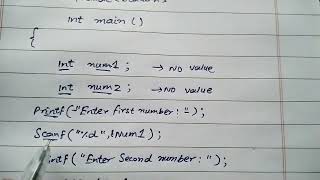 int main ()
{
int num1 ; → No value
int num2 ; → No value
Printf ("Enter first number : ");
Scanf ("%d", &num1);
rintf ("Enter Second number : ");